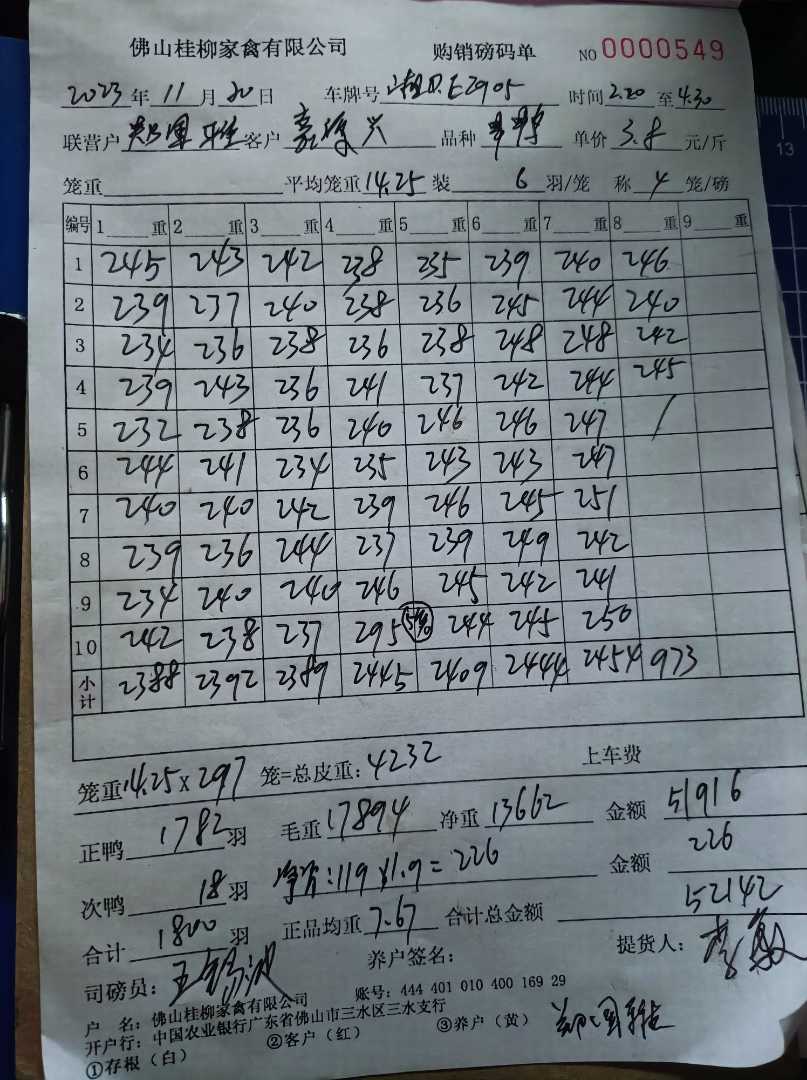 佛山桂柳家禽有限公司 购销磅码单 NO 0000549
2023年11月20日 车牌号 E2905 时间2.20至4.30
联营户 客户 嘉 兴 品种 单价3.8元/斤
笼重 平均笼重14.25 装6羽/笼 称4笼/磅
编号 1重 2重 3重 4重 5重 6重 7重 8重 9重
1 245 243 242 238 235 239 240 246
2 239 237 240 238 236 245 244 240
3 234 236 238 236 238 248 248 242
4 239 243 236 241 237 242 244 245
5 232 238 236 240 246 246 247 /
6 244 241 234 235 243 243 247
7 240 240 242 239 246 245 251
8 239 236 244 237 239 249 242
9 234 240 240 246 245 242 241
10 242 238 237 295 244 245 250
小计 2388 2392 2389 2445 2409 2444 2454 973
笼重14.25×297笼=总皮重:4232 上车费
正鸭1782羽 毛重17894 净重13662 金额51916
次鸭18羽 净次:119×1.9=226 金额226
合计1800羽 正品均重7.67 合计总金额52142
司磅员: 王 波 养户签名: 提货人: 李
户 名:佛山桂柳家禽有限公司 账号:444 401 010 400 169 29
开户行:中国农业银行广东省佛山市三水区三水支行
①存根(白) ②客户(红) ③养户(黄)